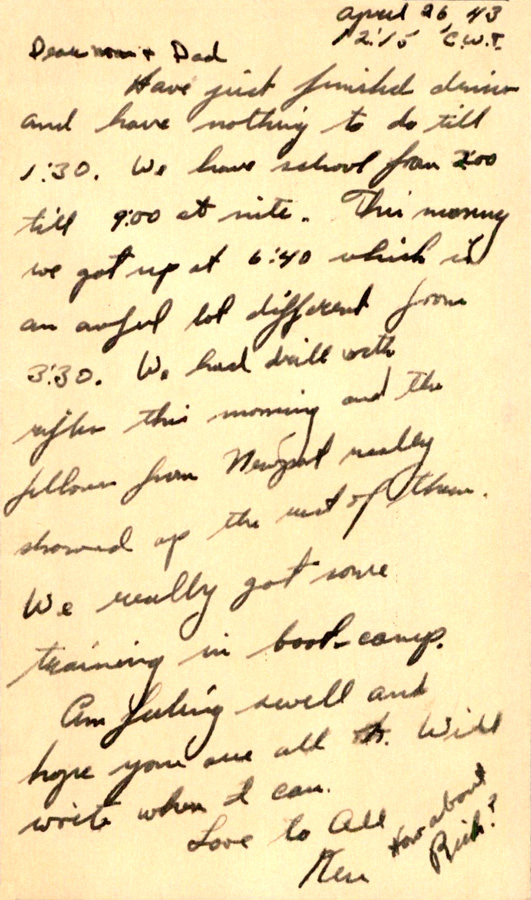 April 26, 43
12:15 C.W.T.
Dear mom + Dad
Have just finished dinner
and have nothing to do till
1:30. We have school from 2:00
till 9:00 at nite. This morning
we got up at 6:40 which is
an awful lot different from
3:30. We had drill with
rifles this morning and the
fellows from Newport really
showed up the rest of them.
We really got some
training in boot-camp.
Am feeling swell and
hope you are all to. Will
write when I can.
Love to All
Ken
How about
Rich?